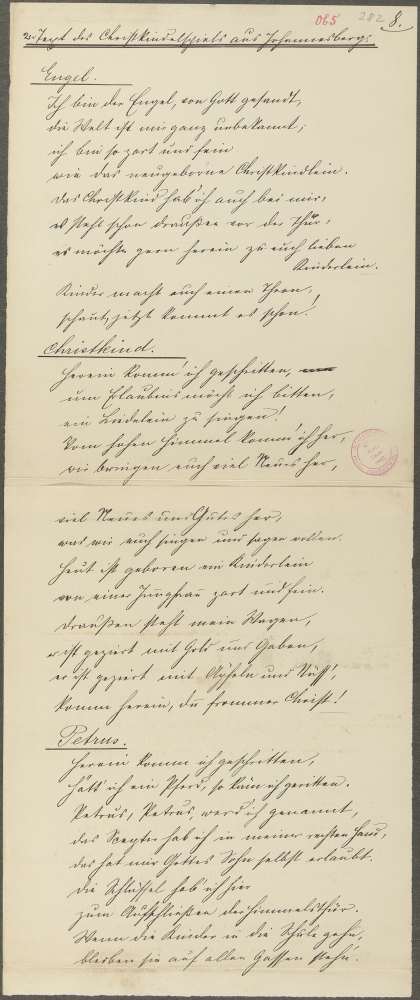 065 282 8.
2. Text des Christkindelspiels aus Johannesberg:
Engel.
Ich bin der Engel, von Gott gesandt,
die Welt ist mir ganz unbekannt;
ich bin so zart und fein
wie das neugeborne Christkindlein.
Das Christkind hab' ich auch bei mir;
es steht schon draußen vor der Thür;
es möchte gern herein zu euch lieben
Kinderlein.
Kinder macht euch einen Thron,
schaut, jetzt kommt es schon!
Christkind.
Herein komm' ich geschritten,
um Erlaubnis möcht ich bitten,
ein Liedelein zu singen!
Vom hohen Himmel komm' ich her,
wir bringen euch viel Neues her,
viel Neues und Gutes her,
was wir euch singen und sagen wollen.
Heut ist geboren ein Kinderlein
von einer Jungfrau zart und fein.
Draußen steht mein Wagen,
er ist geziert mit Gold und Gaben,
er ist geziert mit Äpfeln und Nüss',
komm herein, du frommer Christ!
Petrus.
Herein komm ich geschritten,
hätt' ich ein Pferd, so käm ich geritten.
Petrus, Petrus, werd ich genannt,
das Scepter hab ich in meiner rechten Hand,
das hat mir Gottes Sohn selbst erlaubt.
Die Schlüssel hab' ich hier
zum Aufschließen der Himmelsthür.
Wenn die Kinder in die Schule gehn,
bleiben sie auf allen Gassen stehn.